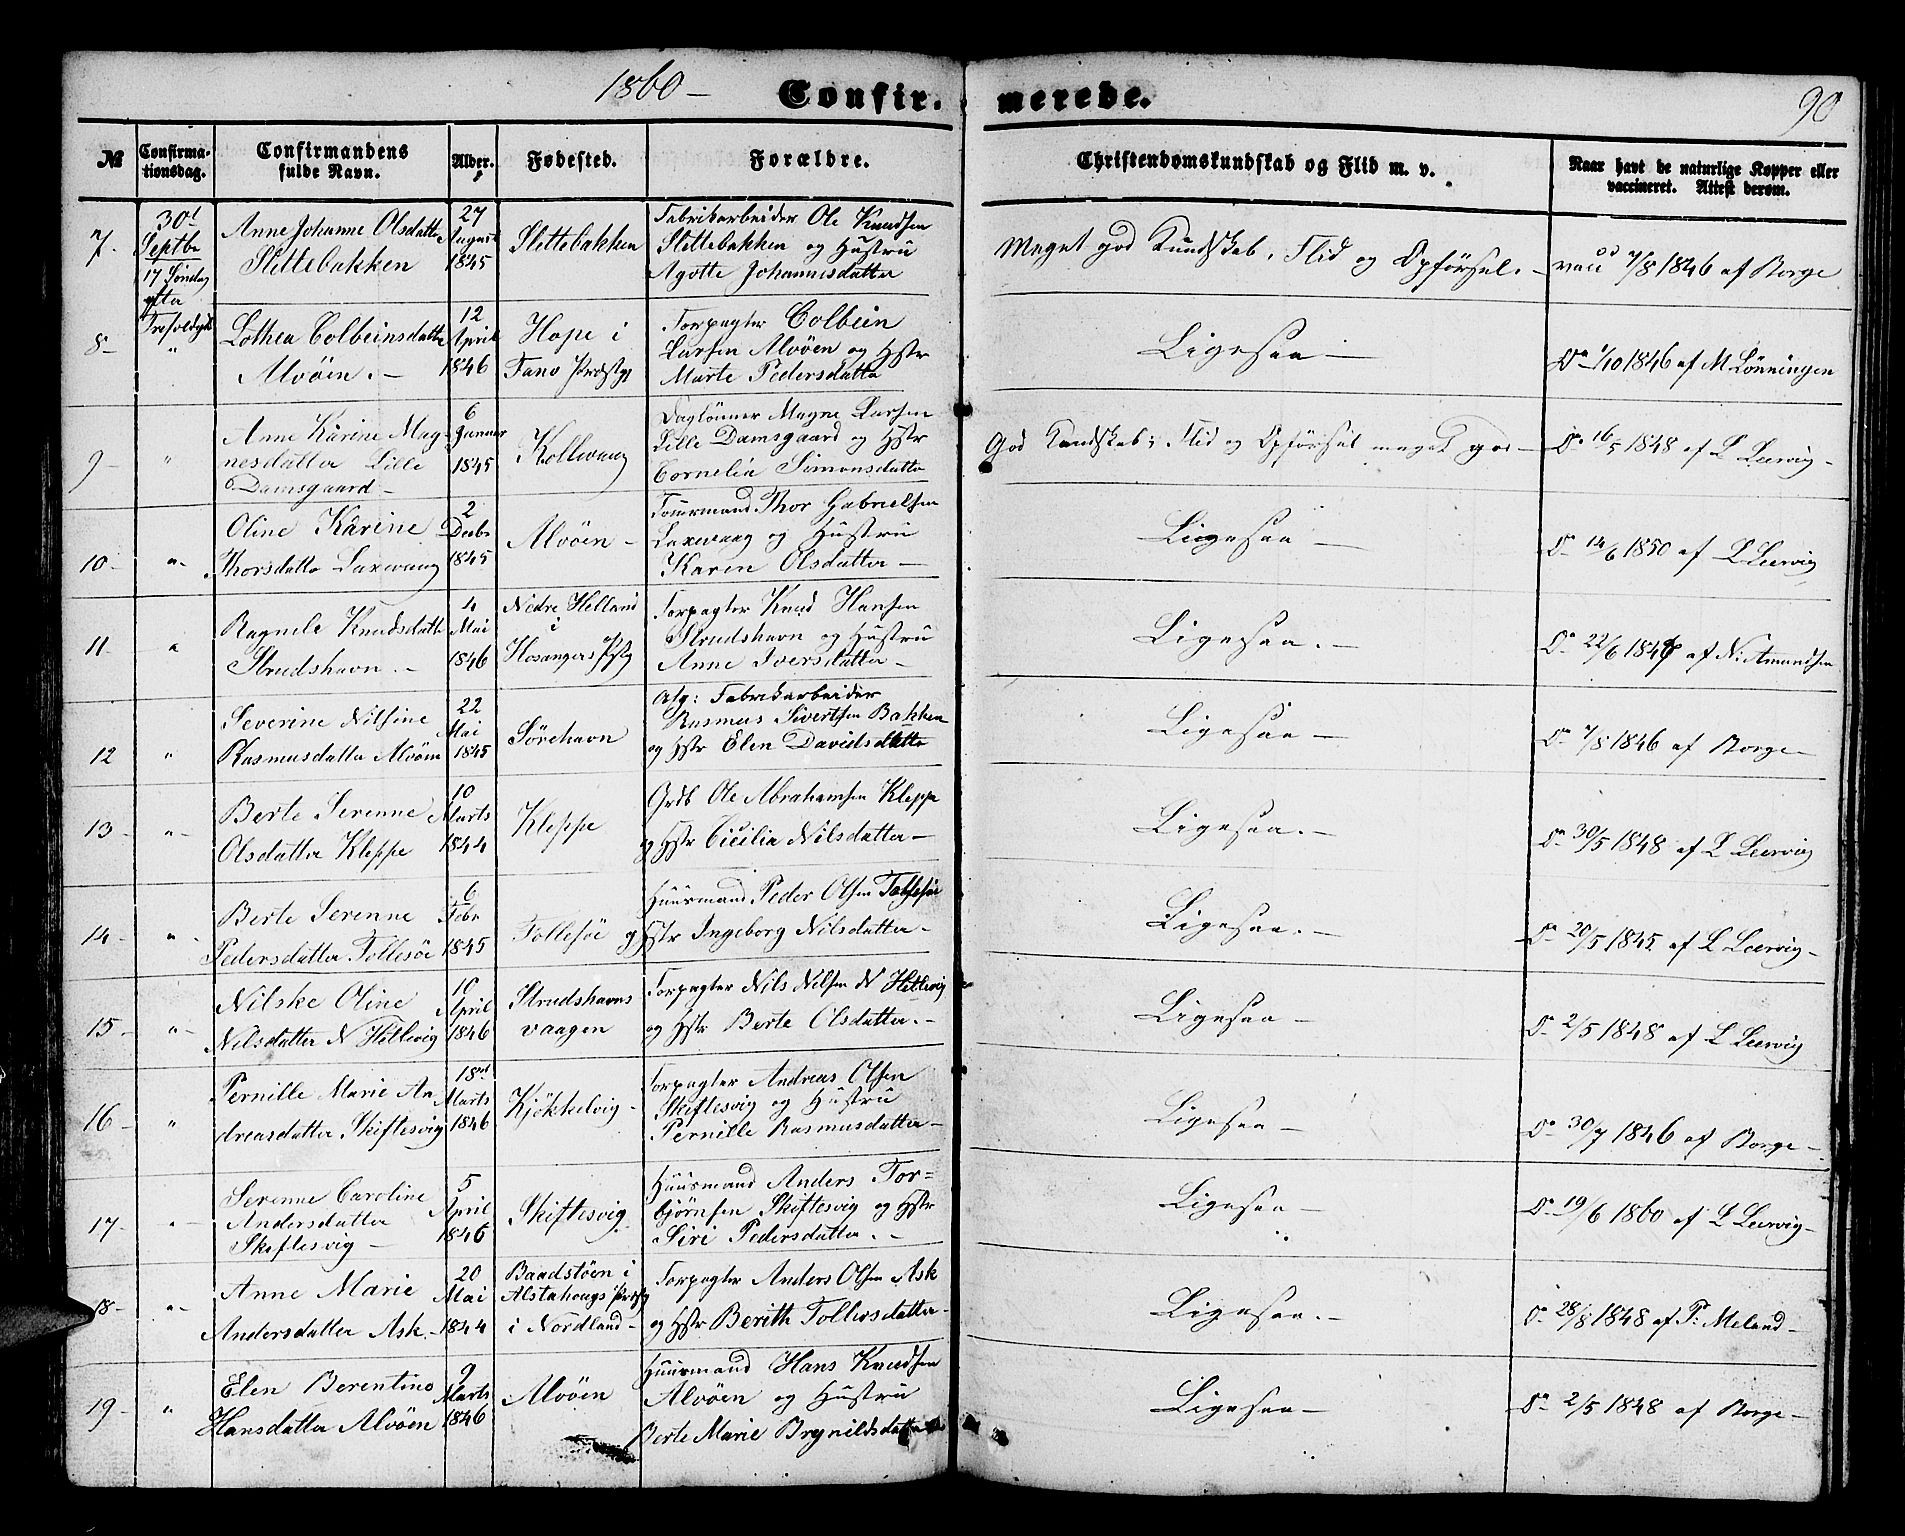 1860 -
Confir-
merede.
90
№
Confirma-
tionsdag.
Confirmandens
fulde Navn.
Alder.
Fødested.
Forældre.
Christendomskundskab og Flid m. v.
Naar havt de naturlige Kopper eller
vaccineret. Attest derom.
7.
30t
Septbr
17 Søndag
efter
Trefoldigh
Anne Johanne Olsdatter
Slettebakken
27
August
1845
Slettebakken
Fabrikarbeider Ole Knudsen
Slettebakken og Hustru
Agotte Johannesdatter
Meget god Kundskab, Flid og Opførsel. -
vacc 7/8 1846 af Borge
8-
"
Lothea Colbeinsdatter
Alvøen. -
12
April
1846
Hope i
Fane Præstgj
Forpagter Colbein
Larsen Alvøen og Hstr
Marte Pedersdatter
Ligesaa -
Do 1/10 1846 af M Lønningen
9-
"
Anne Karine Mag-
nesdatter Lille
Damsgaard -
6
Januar
1845
Kollevaag
Daglønner Magne Larsen
Lille Damsgaard og Hstr
Cornelia Simonsdatter
God Kundskab; Flid og Opførsel meget god -
Do 16/5 1848 af L Leervig -
10-
"-
Oline Karine
Thorsdatter Laxevaag
2
Decbr
1845
Alvøen -
Fouermand Thor Gabrielsen
Laxevaag og Hustru
Karen Olsdatter -
Ligesaa -
Do 14/6 1850 af L Leervig
11-
"
Ragnele Knudsdatter
Strudshavn. -
4
Mai
1846
Nedre Helland
i
Hosangers Pstg
Forpagter Knud Hansen
Strudshavn og Hustru
Anne Iversdatter -
Ligesaa. -
Do 22/6 1846 af N: Amundsen
12
"
Severine Nilsine
Rasmusdatter Alvøen
22
Mai
1845
Sørehavn
Afg: Fabrikarbeider
Rasmus Sivertsen Bakken
og Hstr Elen Davidsdatter
Ligesaa -
Do 7/8 1846 af Borge -
13-
"-
Berte Serenne
Olsdatter Kleppe
10
Marts
1844
Kleppe
Grdb Ole Abrahamsen Kleppe
og Hstr Cicilia Nilsdatter -
Ligesaa. -
Do 30/5 1848 af L Leervig
14-
"-
Berte Serenne
Pedersdatter Follesøe
6
Febr
1845
Follesøe
Huusmand Peder Olsen Follesøe
og Hstr Ingeborg Nilsdatter -
Ligesaa. -
Do 20/5 1845 af L Leervig -
15-
"-
Nilske Oline
Nilsdatter N Hetlevig
10
April
1846
Strudshavns
vaagen
Forpagter Nils Nilsen N Hetlevig
og Hstr Berte Olsdatter. -
Ligesaa -
Do 2/5 1848 af L Leervig
16-
"
Pernille Marie An
dreasdatter Skiftesvig
18de
Marts
1846
Kjøkkelvig -
Forpagter Andreas Olsen
Skiftesvig og Hustru
Pernille Rasmusdatter -
Ligesaa -
Do 30/7 1846 af Borge -
17-
"-
Serenne Caroline
Andersdatter
Skiftesvig -
5
April
1846
Skiftesvig.
Huusmand Anders Tor=
bjørnsen Skiftesvig og Hstr
Siri Pedersdatter. -
Ligesaa -
Do 19/6 1860 af L Leervig -
18-
"-
Anne Marie
Andersdatter Ask. -
20
Mai
1844
Baadstøen i
Alstahougs Præstg
i Nordland -
Forpagter Anders Olsen Ask
og Hstr Berith Tollersdatter -
Ligesaa. -
Do 28/8 1848 af P: Meland -
19-
"
Elen Berentine
Hansdatter Alvøen
9
Marts
1846
Alvøen
Huusmand Hans Knudsen
Alvøen og Hustru
Berte Marie Brynildsdatter
Ligesaa -
Do 2/5 1848 af Borge -